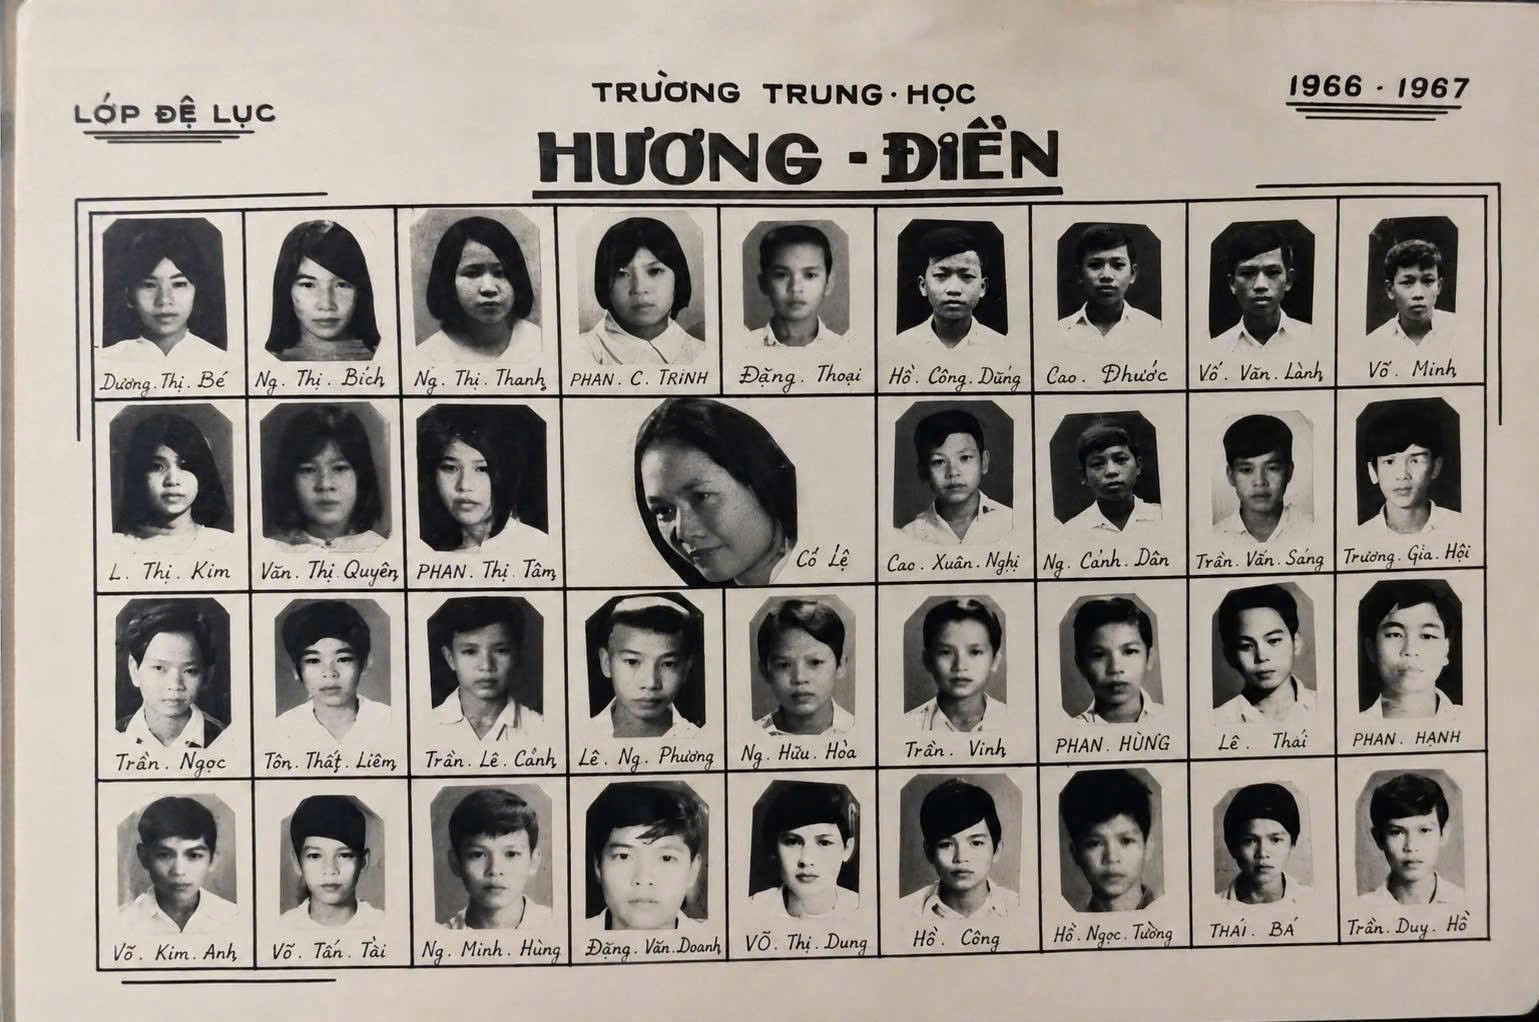 LỚP ĐỆ LỤC
TRƯỜNG TRUNG·HỌC
HƯƠNG - ĐIỀN
1966 - 1967
Dương. Thị. Bé
Ng. Thị. Bích
Ng. Thị. Thanh
PHAN. C. TRINH
Đặng. Thoại
Hồ. Công. Dũng
Cao. Đhước
Võ. Văn. Lành
Võ. Minh
L. Thị. Kim
Văn. Thị. Quyên
PHAN. Thị. Tâm
Cô Lệ
Cao. Xuân. Nghị
Ng. Cảnh. Dân
Trần. Văn. Sáng
Trương. Gia. Hội
Trần. Ngọc
Tôn. Thất. Liêm
Trần. Lê. Cảnh
Lê. Ng. Phương
Ng. Hữu. Hòa
Trần. Vinh
PHAN. HÙNG
Lê. Thái
PHAN. HẠNH
Võ. Kim. Anh
Võ. Tấn. Tài
Ng. Minh. Hùng
Đặng. Văn. Doanh
VÕ. Thị. Dung
Hồ. Công
Hồ. Ngọc. Tường
THÁI. BÁ
Trần. Duy. Hồ